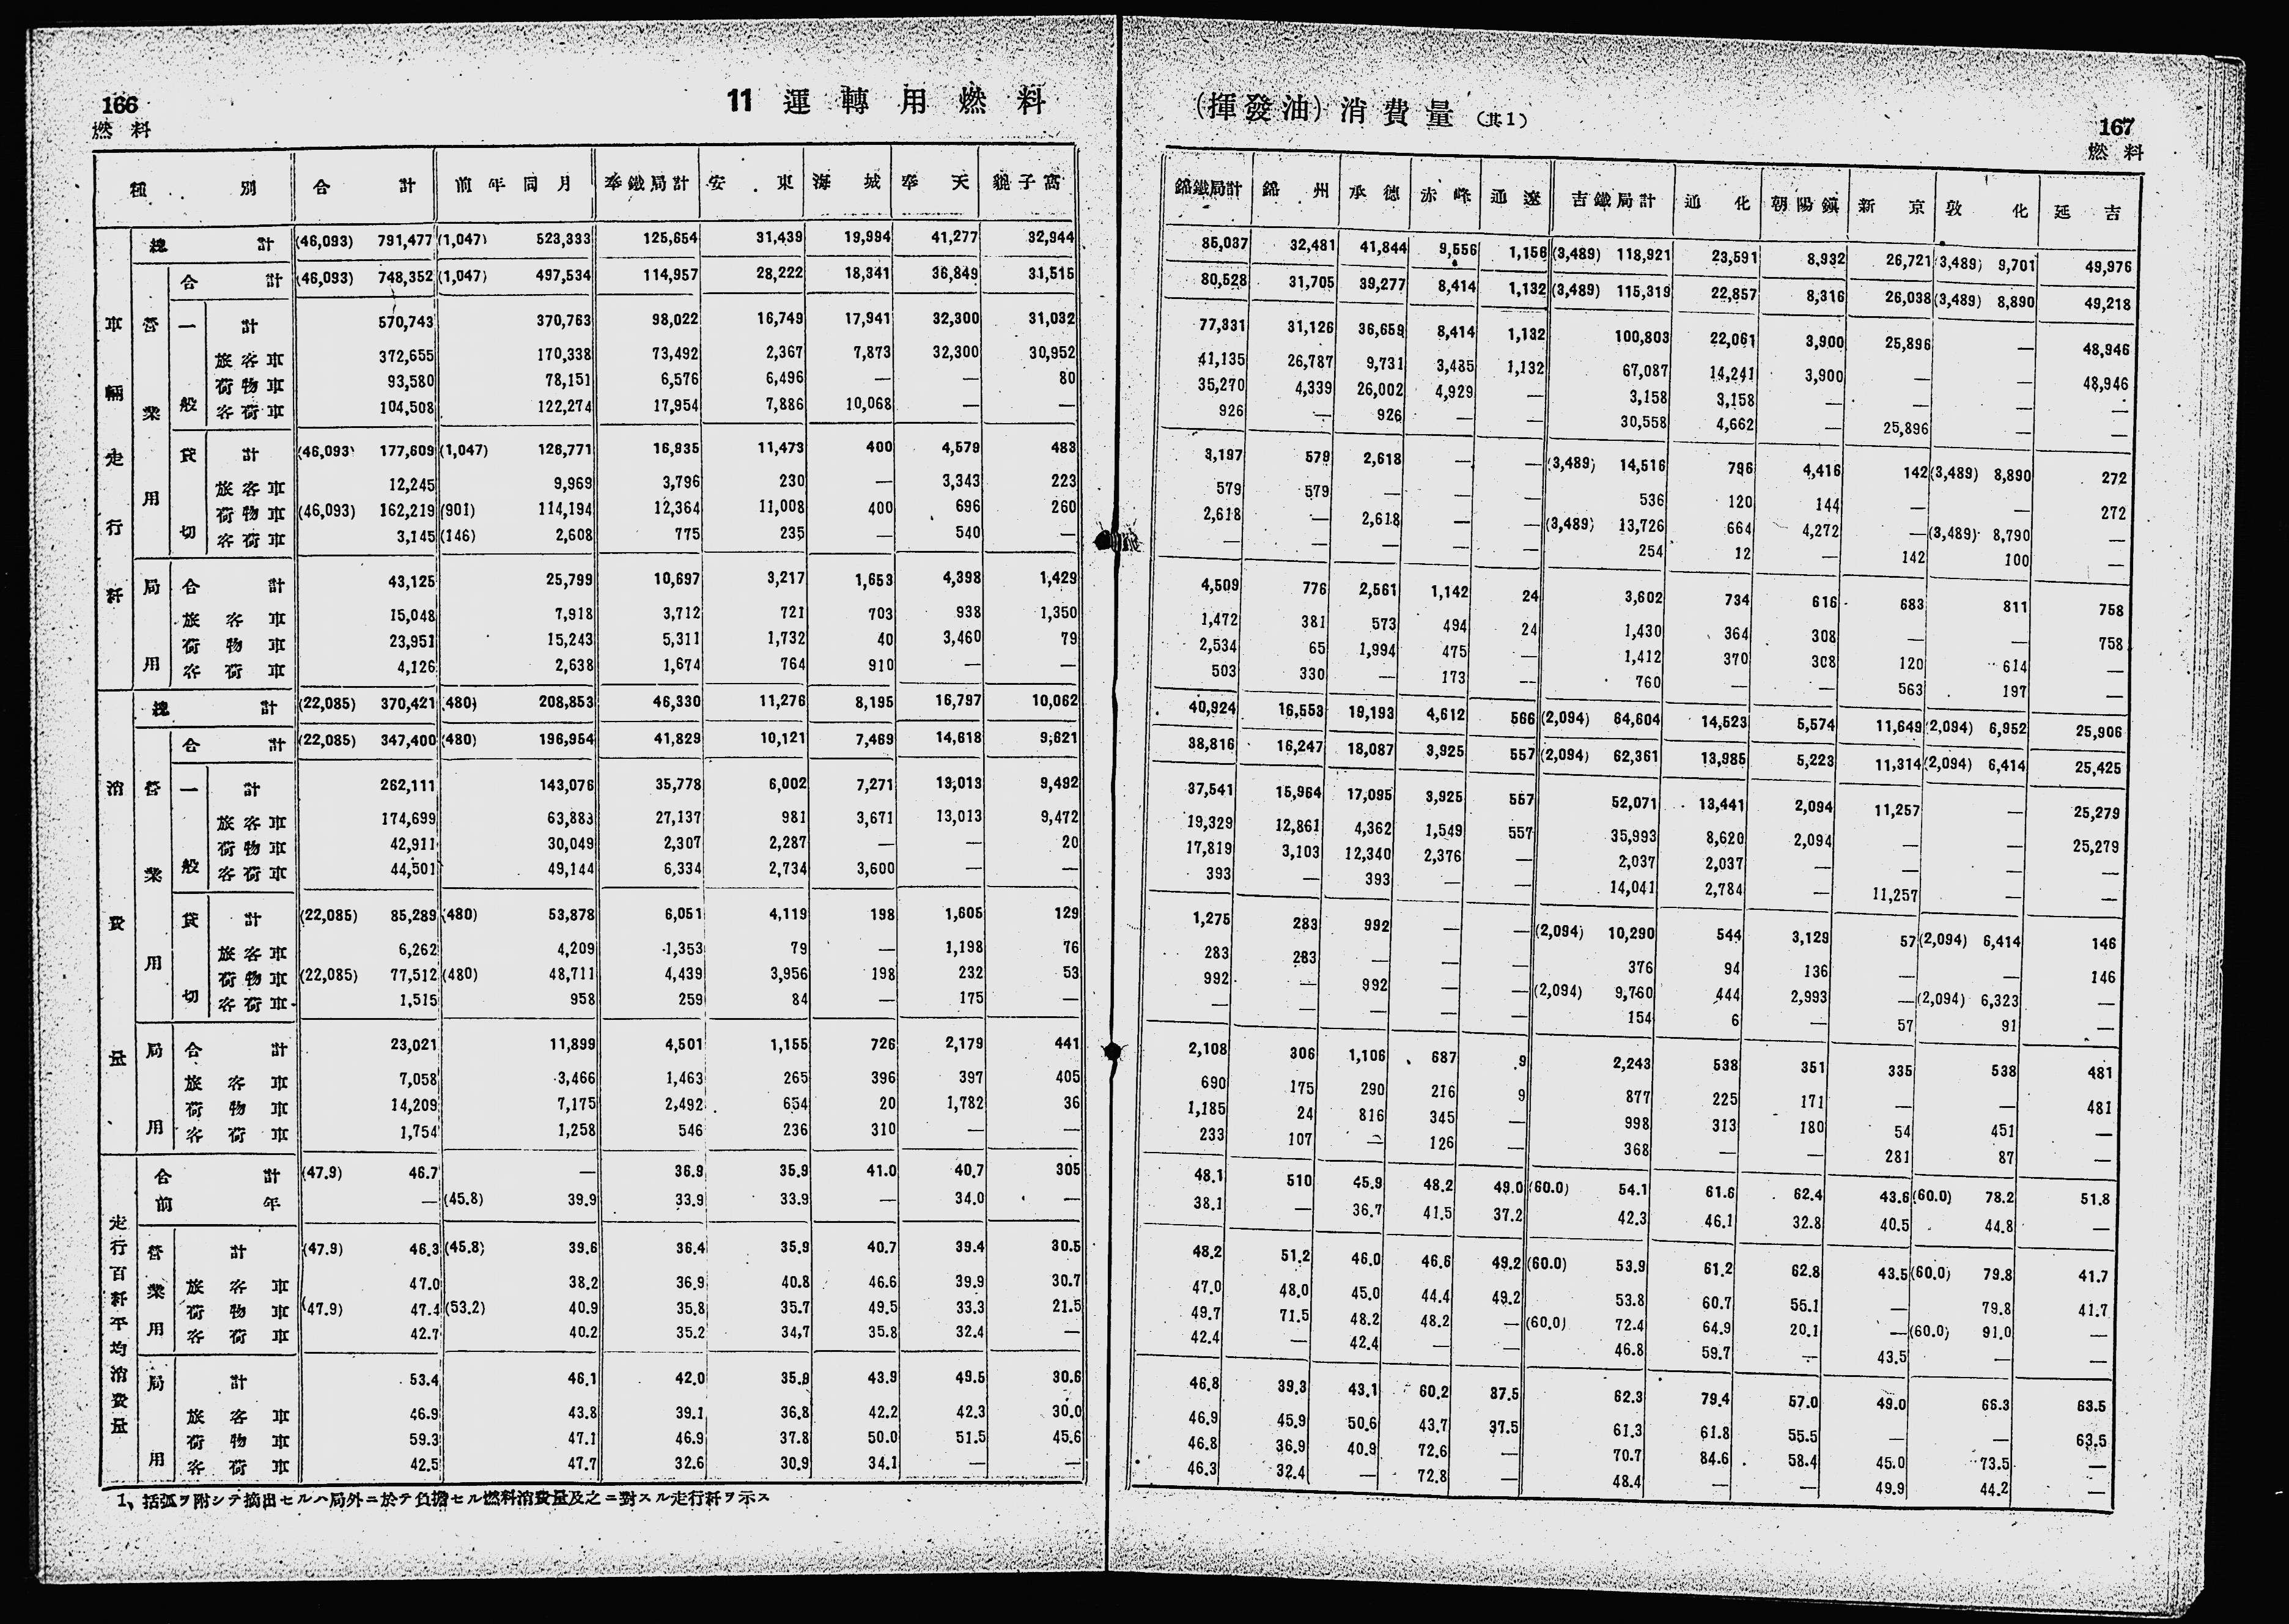 166
燃料
11 運轉用燃料
種別 合計 前年同月 奉鐵局計 安東 海城 奉天 貔子窩
車輛走行粁
總計 (46,093) 791,477 (1,047) 523,333 125,654 31,439 19,994 41,277 32,944
營業用 合計 (46,093) 748,352 (1,047) 497,534 114,957 28,222 18,341 36,849 31,515
一般 計 570,743 370,763 98,022 16,749 17,941 32,300 31,032
旅客車 372,655 170,338 73,492 2,367 7,873 32,300 30,952
荷物車 93,580 78,151 6,576 6,496 — — 80
客荷車 104,508 122,274 17,954 7,886 10,068 — —
貸切 計 (46,093) 177,609 (1,047) 126,771 16,935 11,473 400 4,579 483
旅客車 12,245 9,969 3,796 230 — 3,343 223
荷物車 (46,093) 162,219 (901) 114,194 12,364 11,008 400 696 260
客荷車 3,145 (146) 2,608 775 235 — 540 —
局用 合計 43,125 25,799 10,697 3,217 1,653 4,398 1,429
旅客車 15,048 7,918 3,712 721 703 938 1,350
荷物車 23,951 15,243 5,311 1,732 40 3,460 79
客荷車 4,126 2,638 1,674 764 910 — —
消費量
總計 (22,085) 370,421 (480) 208,853 46,330 11,276 8,195 16,797 10,062
營業用 合計 (22,085) 347,400 (480) 196,954 41,829 10,121 7,469 14,618 9,621
一般 計 262,111 143,076 35,778 6,002 7,271 13,013 9,492
旅客車 174,699 63,883 27,137 981 3,671 13,013 9,472
荷物車 42,911 30,049 2,307 2,287 — — 20
客荷車 44,501 49,144 6,334 2,734 3,600 — —
貸切 計 (22,085) 85,289 (480) 53,878 6,051 4,119 198 1,605 129
旅客車 6,262 4,209 1,353 79 — 1,198 76
荷物車 (22,085) 77,512 (480) 48,711 4,439 3,956 198 232 53
客荷車 1,515 958 259 84 — 175 —
局用 合計 23,021 11,899 4,501 1,155 726 2,179 441
旅客車 7,058 3,466 1,463 265 396 397 405
荷物車 14,209 7,175 2,492 654 20 1,782 36
客荷車 1,754 1,258 546 236 310 — —
走行百粁平均消費量
合計 (47.9) 46.7 — 36.9 35.9 41.0 40.7 305
前年 — (45.8) 39.9 33.9 33.9 — 34.0 —
營業用 計 (47.9) 46.3 (45.8) 39.6 36.4 35.9 40.7 39.4 30.5
旅客車 47.0 38.2 36.9 40.8 46.6 39.9 30.7
荷物車 (47.9) 47.4 (53.2) 40.9 35.8 35.7 49.5 33.3 21.5
客荷車 42.7 40.2 35.2 34,7 35.8 32.4 —
局用 計 53.4 46.1 42.0 35.9 43.9 49.5 30.6
旅客車 46.9 43.8 39.1 36.8 42.2 42.3 30.0
荷物車 59.3 47.1 46.9 37.8 50.0 51.5 45.6
客荷車 42.5 47.7 32.6 30.9 34.1 — —
1、括弧ヲ附シテ摘出セルハ局外ニ於テ負擔セル燃料消費量及之ニ對スル走行粁ヲ示ス
(揮發油) 消費量 (其1)
167
燃料
錦鐵局計 錦州 承德 赤峰 通遼 吉鐵局計 通化 朝陽鎭 新京 敦化 延吉
85,037 32,481 41,844 9,556 1,156 (3,489) 118,921 23,591 8,932 26,721 (3,489) 9,701 49,976
80,528 31,705 39,277 8,414 1,132 (3,489) 115,319 22,857 8,316 26,038 (3,489) 8,890 49,218
77,331 31,126 36,659 8,414 1,132 100,803 22,061 3,900 25,896 — 48,946
41,135 26,787 9,731 3,485 1,132 67,087 14,241 3,900 — — 48,946
35,270 4,339 26,002 4,929 — 3,158 3,158 — — — —
926 — 926 — — 30,558 4,662 — 25,896 — —
3,197 579 2,618 — — (3,489) 14,516 796 4,416 142 (3,489) 8,890 272
579 579 — — — 536 120 144 — — 272
2,618 — 2,618 — — (3,489) 13,726 664 4,272 — (3,489) 8,790 —
— — — — — 254 12 — 142 100 —
4,509 776 2,561 1,142 24 3,602 734 616 683 811 758
1,472 381 573 494 24 1,430 364 308 — — 758
2,534 65 1,994 475 — 1,412 370 308 120 614 —
503 330 — 173 — 760 — — 563 197 —
40,924 16,553 19,193 4,612 566 (2,094) 64,604 14,523 5,574 11,649 (2,094) 6,952 25,906
38,816 16,247 18,087 3,925 557 (2,094) 62,361 13,985 5,223 11,314 (2,094) 6,414 25,425
37,541 15,964 17,095 3,925 557 52,071 13,441 2,094 11,257 — 25,279
19,329 12,861 4,362 1,549 557 35,993 8,620 2,094 — — 25,279
17,819 3,103 12,340 2,376 — 2,037 2,037 — — — —
393 — 393 — — 14,041 2,784 — 11,257 — —
1,275 283 992 — — (2,094) 10,290 544 3,129 57 (2,094) 6,414 146
283 283 — — — 376 94 136 — — 146
992 — 992 — — (2,094) 9,760 444 2,993 — (2,094) 6,323 —
— — — — — 154 6 — 57 91 —
2,108 306 1,106 687 9 2,243 538 351 335 538 481
690 175 290 216 9 877 225 171 — — 481
1,185 24 816 345 — 998 313 180 54 451 —
233 107 — 126 — 368 — — 281 87 —
48.1 510 45.9 48.2 49.0 (60.0) 54.1 61.6 62.4 43.6 (60.0) 78.2 51.8
38.1 — 36.7 41.5 37.2 42.3 46.1 32.8 40.5 44.8 —
48.2 51.2 46.0 46.6 49.2 (60.0) 53.9 61.2 62.8 43.5 (60.0) 79.8 41.7
47.0 48.0 45.0 44.4 49.2 53.8 60.7 55.1 — 79.8 41.7
49.7 71.5 48.2 48.2 — (60.0) 72.4 64.9 20.1 — (60.0) 91.0 —
42.4 — 42.4 — — 46.8 59.7 — 43.5 — —
46.8 39.3 43.1 60.2 37.5 62.3 79.4 57.0 49.0 66.3 63.5
46.9 45.9 50.6 43.7 37.5 61.3 61.8 55.5 — — 63.5
46.8 36.9 40.9 72.6 — 70.7 84.6 58.4 45.0 73.5 —
46.3 32.4 — 72.8 — 48.4 — — 49.9 44.2 —